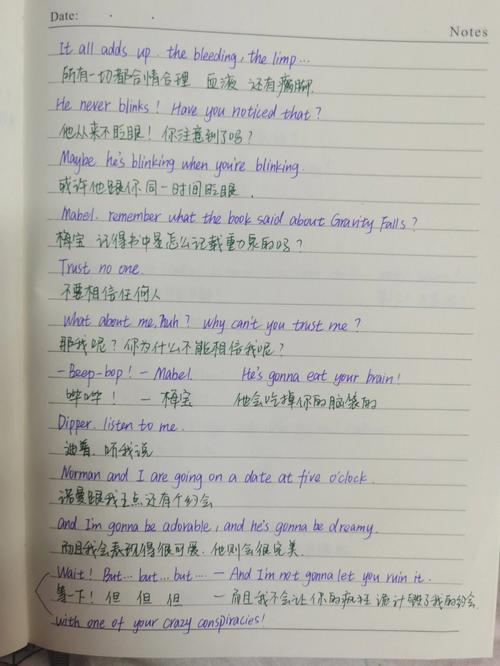 Date:
Notes
It all adds up. the bleeding, the limp...
所有一切都合情合理 血液 还有痛脚
He never blinks! Have you noticed that?
他从来不眨眼！你注意到了吗？
Maybe he's blinking when you're blinking.
或许他跟你同一时间眨眼.
Mabel. remember what the book said about Gravity Falls?
梅宝 记得书中是怎么记载重力泉的吗？
Trust no one.
不要相信任何人
what about me, huh? why can't you trust me?
那我呢？你为什么不能相信我呢？
-Beep-bop! - Mabel. He's gonna eat your brain!
哔哔！ - 梅宝 他会吃掉你的脑袋的
Dipper. listen to me.
迪普. 听我说
Norman and I are going on a date at five o'clock.
诺曼跟我五点还有个约会
and I'm gonna be adorable, and he's gonna be dreamy.
而且我会表现得很可爱. 他则会很完美
Wait! But... but... but... - And I'm not gonna let you ruin it.
等一下！但 但 但 - 而且我不会让你的疯狂 诡计毁了我的约会.
with one of your crazy conspiracies!